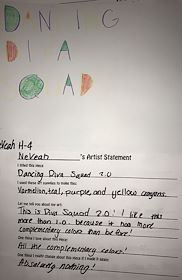 D N I G
D I A
Q A D
Neveah H-4
Neveah 's Artist Statement
I titled this piece
Dancing Diva Squad 2.0
I used these art supplies to make this:
Varmdion, teal, purple, and yellow crayons.
Let me tell you about my art:
This is Diva Squad 2.0! I like this
more than 1.0. because it has more
complementary colors than before!
One thing I love about this piece:
All the complementary colors!
One thing I might change about this piece if I made it again:
Absolutely nothing!